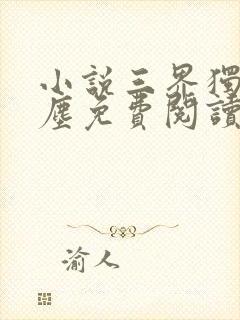 小說三界獨
塵免費閱讀
渝人